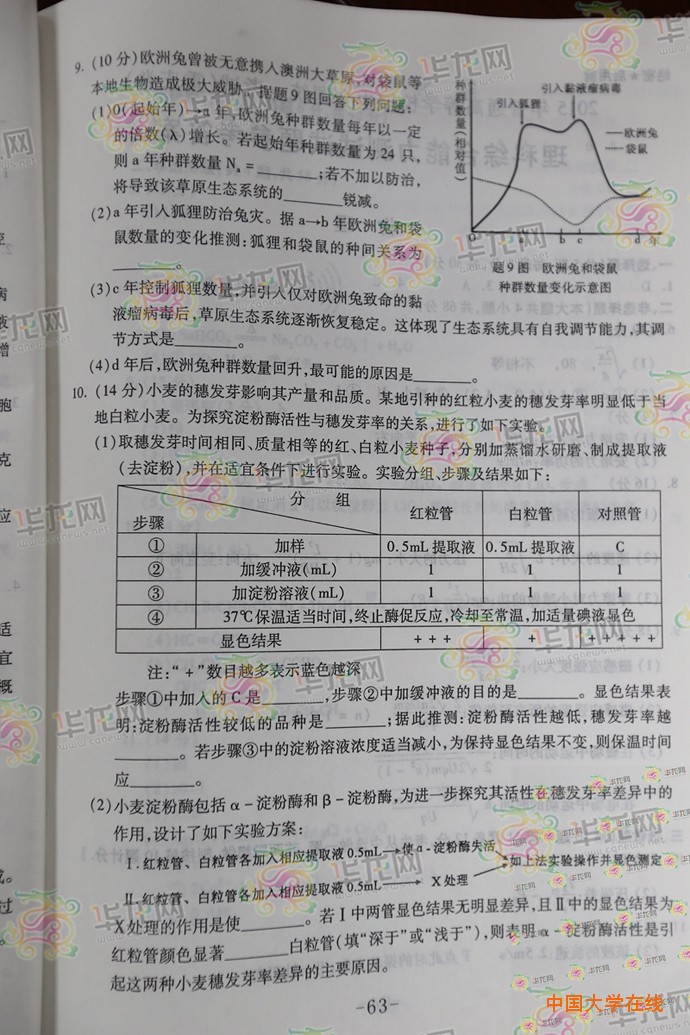 9. (10 分)欧洲兔曾被无意携入澳洲大草原,对袋鼠等
本地生物造成极大威胁。据题 9 图回答下列问题:
(1)0(起始年)→a 年,欧洲兔种群数量每年以一定
的倍数(λ)增长。若起始年种群数量为 24 只,
则 a 年种群数量 Nₐ = ________;若不加以防治,
将导致该草原生态系统的________锐减。
(2)a 年引入狐狸防治兔灾。据 a→b 年欧洲兔和袋
鼠数量的变化推测:狐狸和袋鼠的种间关系为
________。
(3)c 年控制狐狸数量,并引入仅对欧洲兔致命的黏
液瘤病毒后,草原生态系统逐渐恢复稳定。这体现了生态系统具有自我调节能力,其调
节方式是________。
(4)d 年后,欧洲兔种群数量回升,最可能的原因是________。
种群数量(相对值)
引入黏液瘤病毒
引入狐狸
欧洲兔
袋鼠
O a b c d 年
题 9 图 欧洲兔和袋鼠
种群数量变化示意图
10. (14 分)小麦的穗发芽影响其产量和品质。某地引种的红粒小麦的穗发芽率明显低于当
地白粒小麦。为探究淀粉酶活性与穗发芽率的关系,进行了如下实验。
(1)取穗发芽时间相同、质量相等的红、白粒小麦种子,分别加蒸馏水研磨、制成提取液
(去淀粉),并在适宜条件下进行实验。实验分组、步骤及结果如下:
分 组
步骤
红粒管 白粒管 对照管
① 加样 0.5mL 提取液 0.5mL 提取液 C
② 加缓冲液(mL) 1 1 1
③ 加淀粉溶液(mL) 1 1 1
④ 37℃保温适当时间,终止酶促反应,冷却至常温,加适量碘液显色
显色结果 + + + + + + + + +
注:“+”数目越多表示蓝色越深
步骤①中加入的 C 是________,步骤②中加缓冲液的目的是________。显色结果表
明:淀粉酶活性较低的品种是________;据此推测:淀粉酶活性越低,穗发芽率越
________。若步骤③中的淀粉溶液浓度适当减小,为保持显色结果不变,则保温时间
应________。
(2)小麦淀粉酶包括 α-淀粉酶和 β-淀粉酶,为进一步探究其活性在穗发芽率差异中的
作用,设计了如下实验方案:
Ⅰ.红粒管、白粒管各加入相应提取液 0.5mL→使 α-淀粉酶失活
如上法实验操作并显色测定
Ⅱ.红粒管、白粒管各加入相应提取液 0.5mL→ X 处理
X 处理的作用是使________。若Ⅰ中两管显色结果无明显差异,且Ⅱ中的显色结果为
红粒管颜色显著________白粒管(填“深于”或“浅于”),则表明 α-淀粉酶活性是引
起这两种小麦穗发芽率差异的主要原因。
-63-
华龙网
www.cqnews.net
中国大学在线